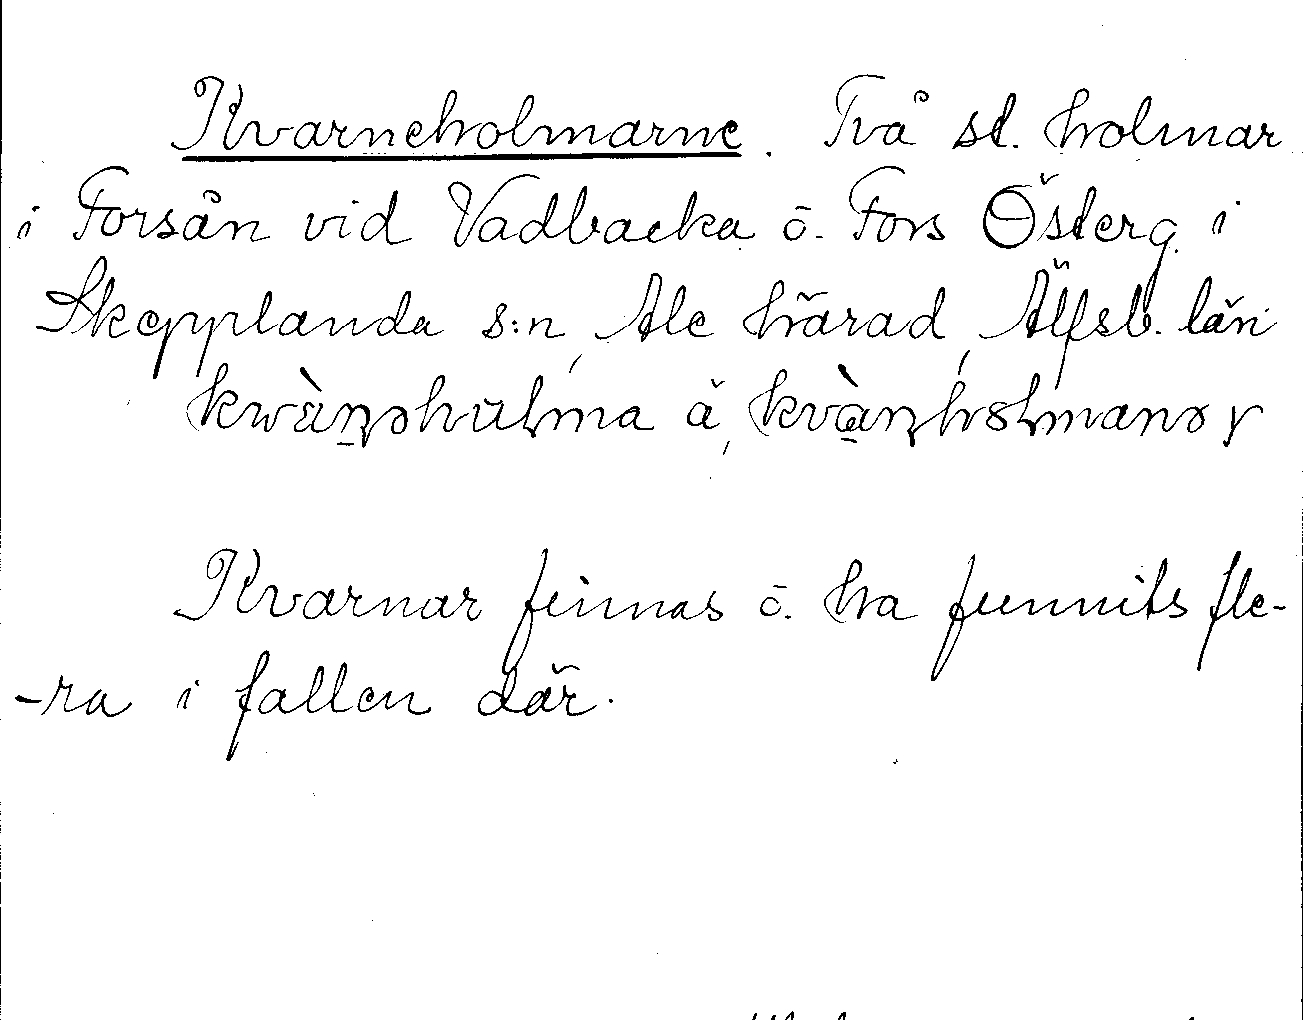 Kvarneholmarne. Två st. holmar
i Forsån vid Vadbacka o. Fors Österg. i
Skepplanda s:n, Ale härad, Älfsb. län
å,
Kvarnar finnas o. ha funnits fle-
-ra i fallen där.